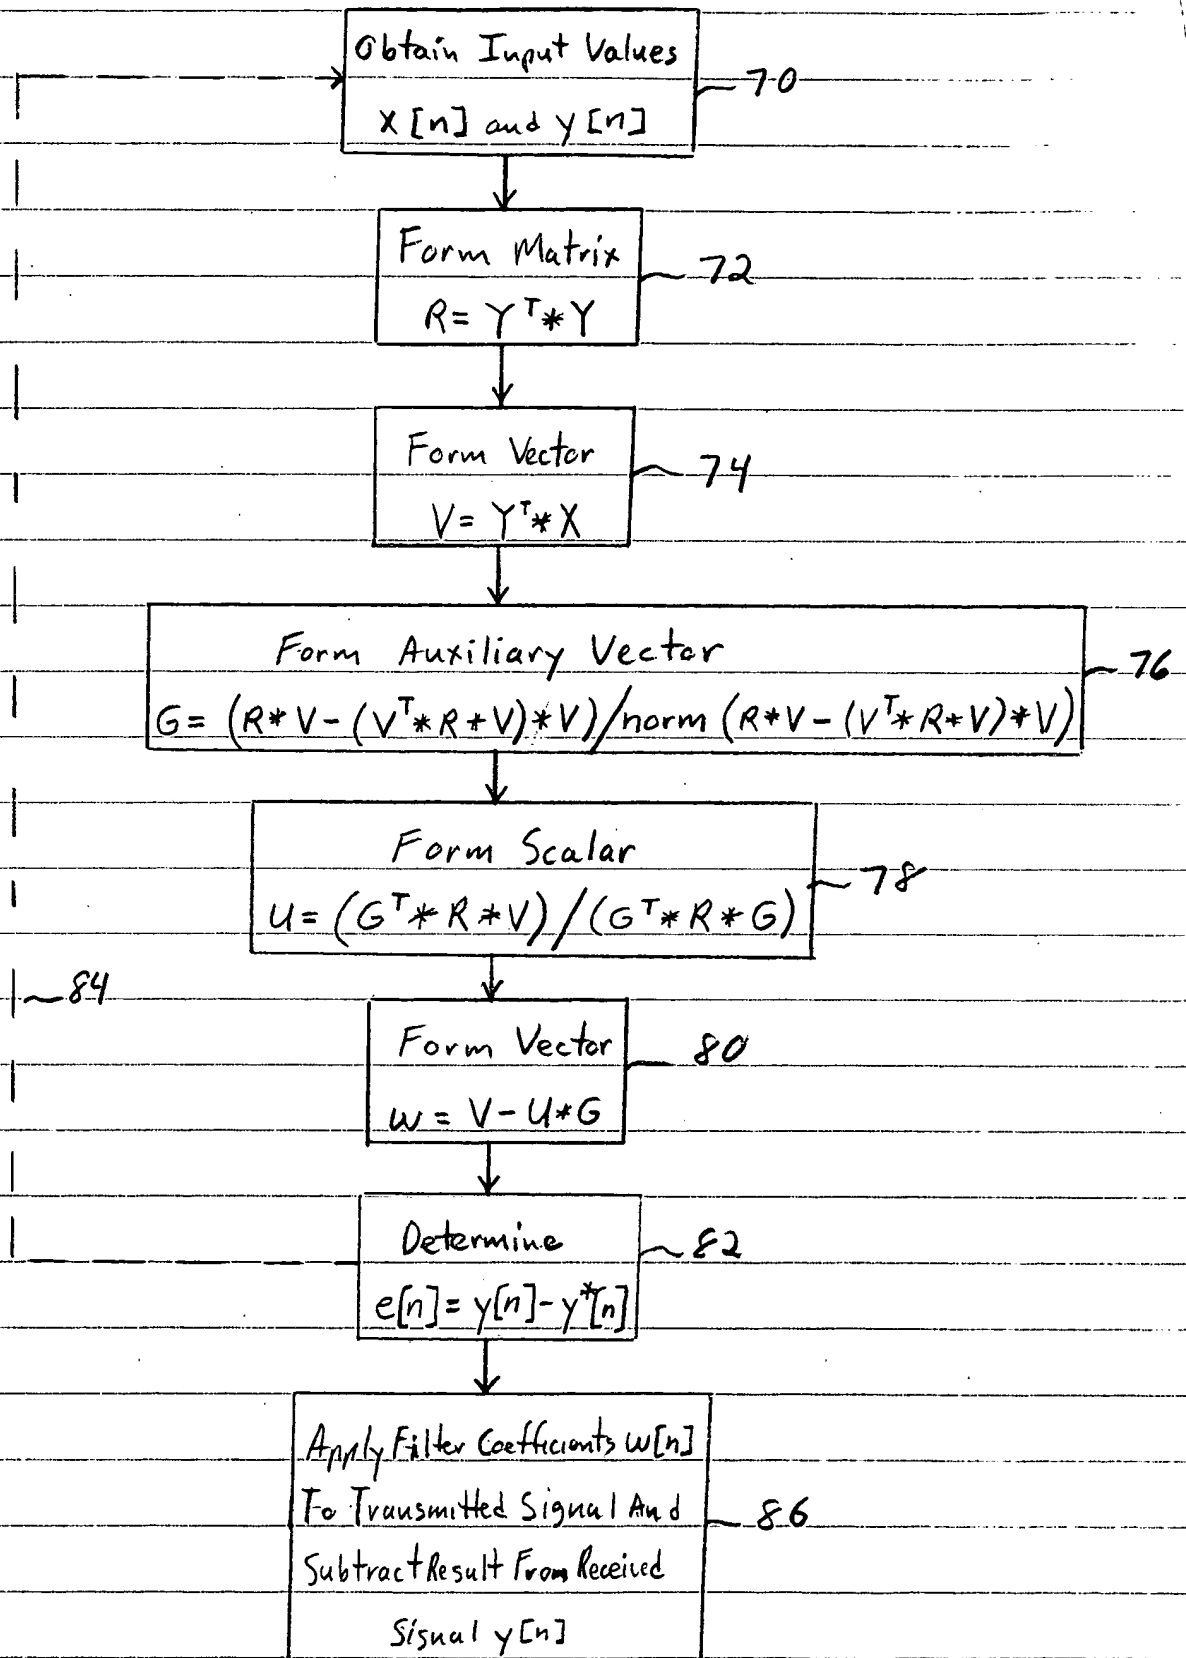 Obtain Input Values
x[n] and y[n]
70
Form Matrix
R= Y^T*Y
72
Form Vector
V= Y^T*X
74
Form Auxiliary Vector
G= (R*V-(V^T*R*V)*V)/norm(R*V-(V^T*R*V)*V)
76
Form Scalar
U=(G^T*R*V)/(G^T*R*G)
78
84
Form Vector
w = V-U*G
80
Determine
e[n]=y[n]-y*[n]
82
Apply Filter Coefficients w[n]
To Transmitted Signal And
Subtract Result From Received
Signal y[n]
86